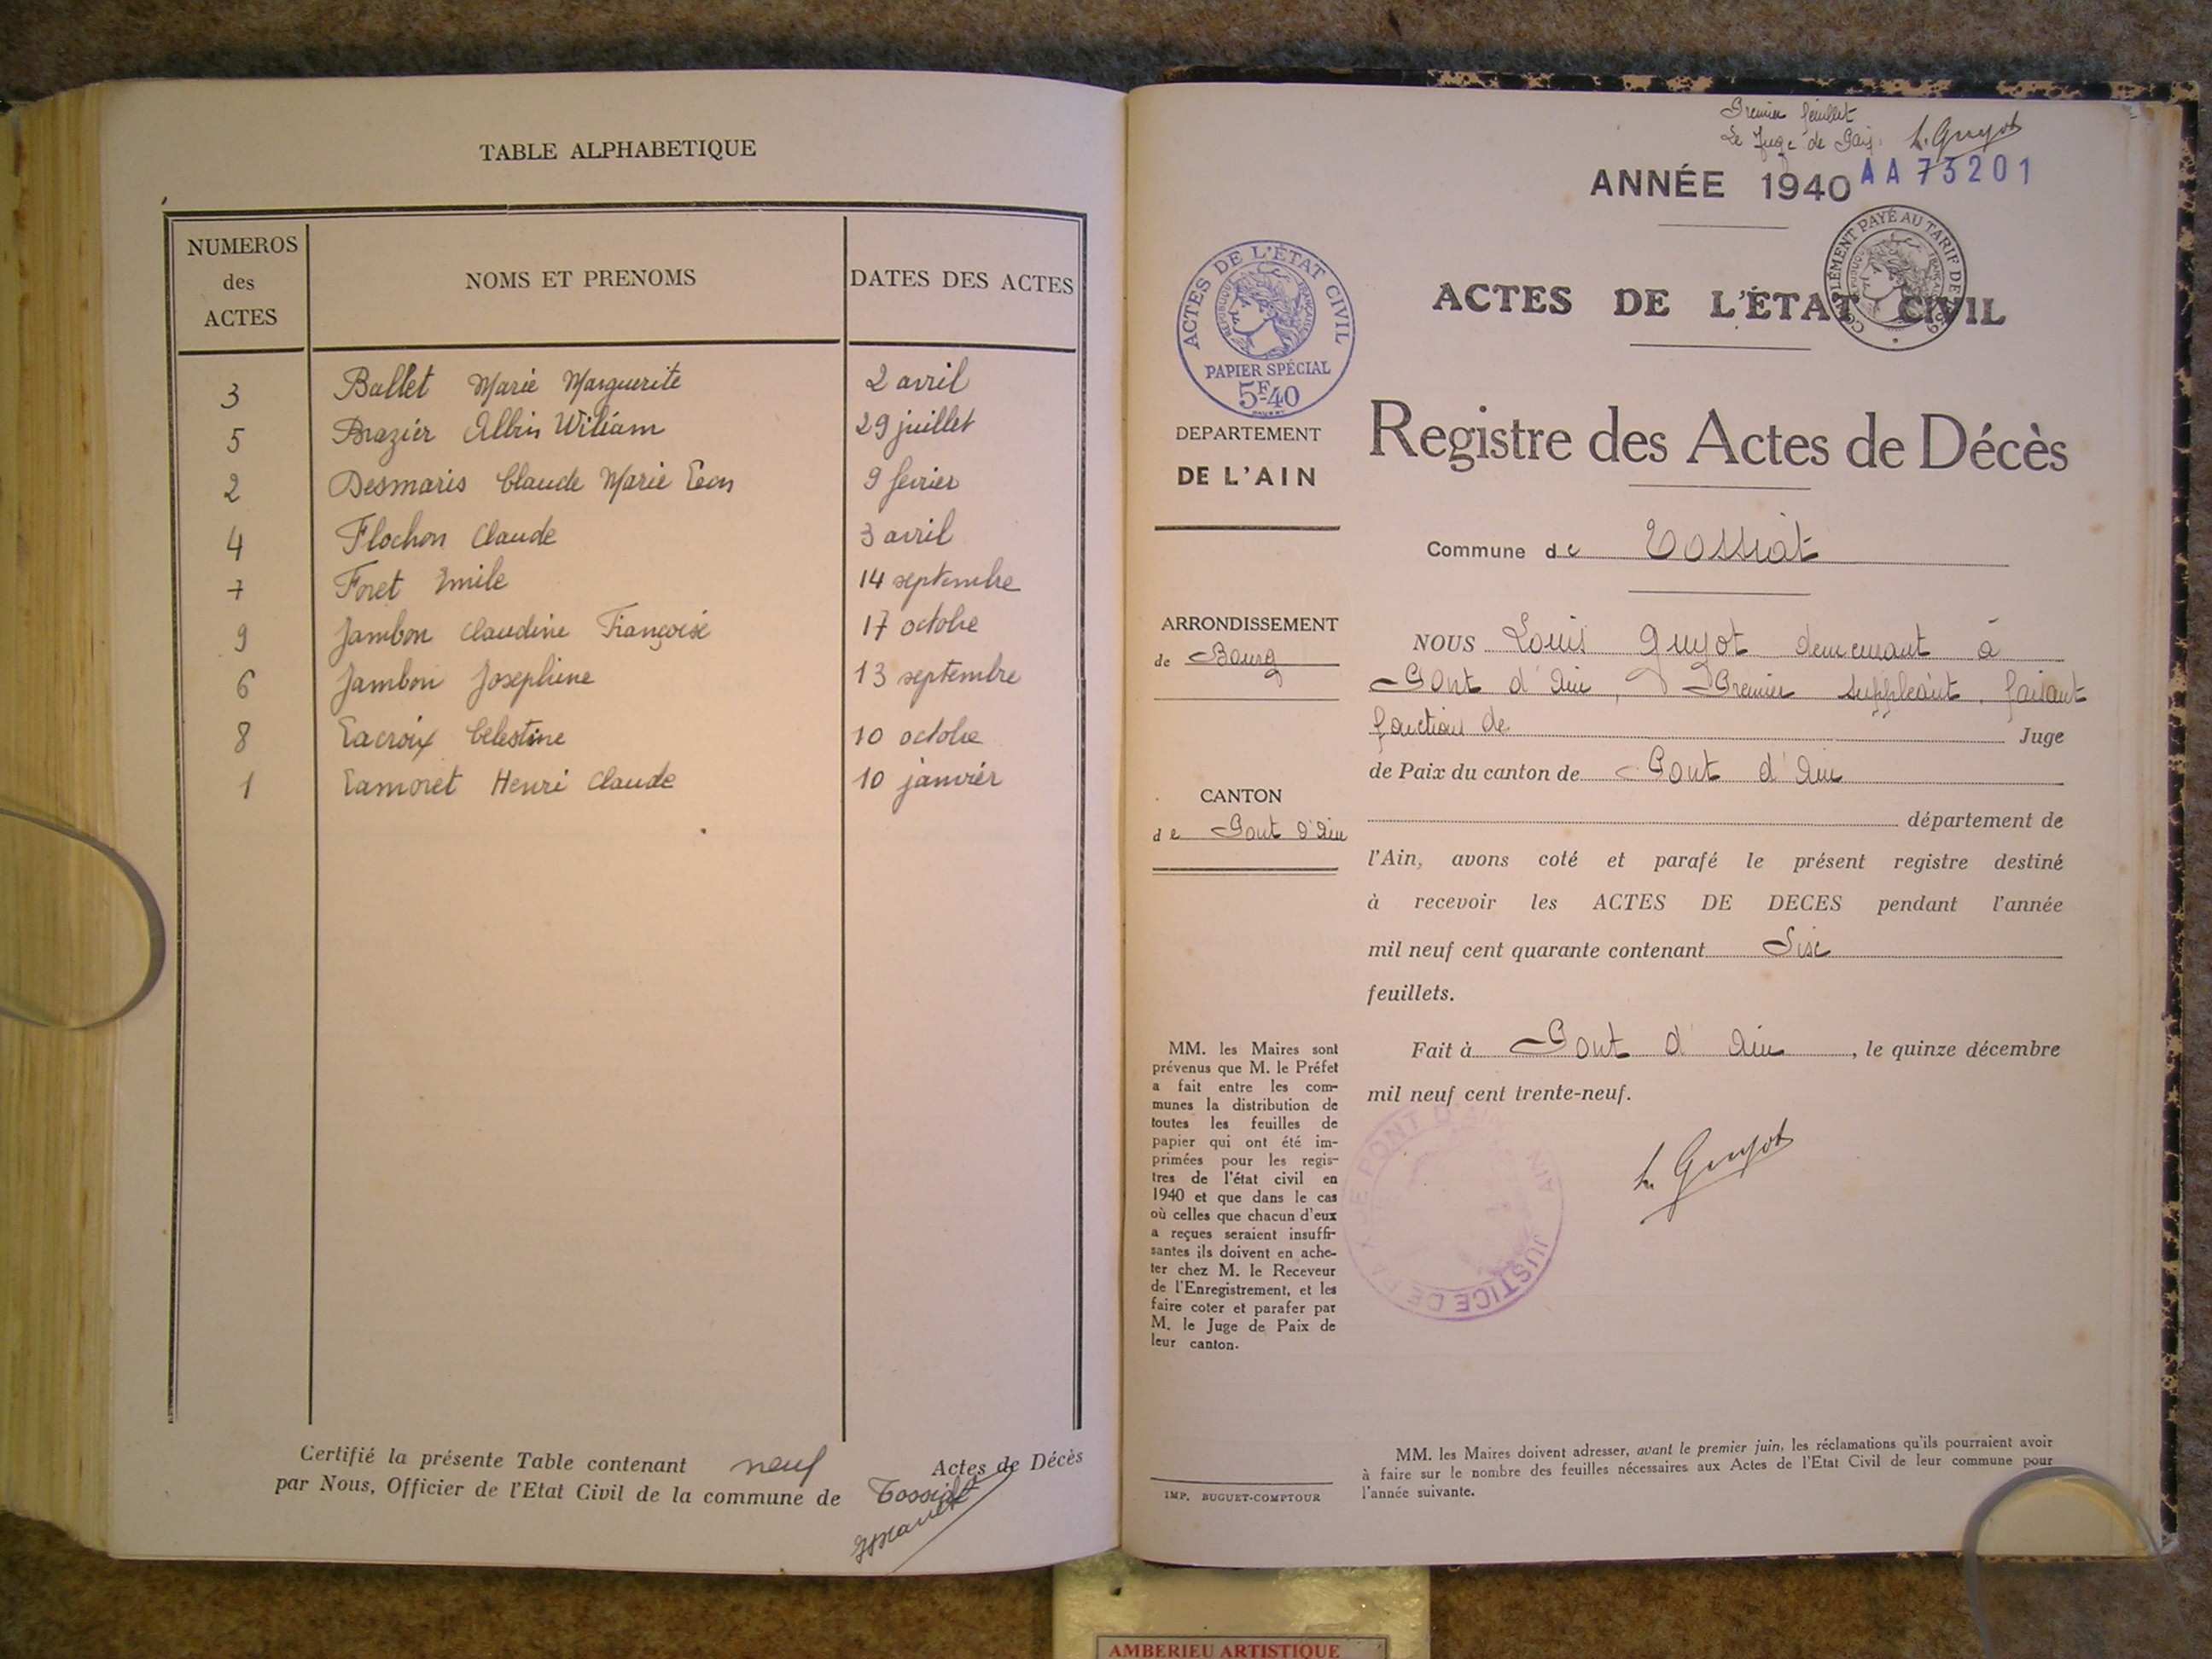 TABLE ALPHABETIQUE
NUMEROS des ACTES
NOMS ET PRENOMS
DATES DES ACTES
3 Ballet Marie Marguerite 2 avril
5 Brazier Albin Wiliam 29 juillet
2 Desmaris Claude Marie Leon 9 fevrier
4 Flochon Claude 3 avril
7 Foret Emile 14 septembre
9 Jambon Claudine Françoise 17 octobre
6 Jambon Josephine 13 septembre
8 Lacroix Celestine 10 octobre
1 Lamoret Henri Claude 10 janvier
Certifié la présente Table contenant neuf Actes de Décès
par Nous, Officier de l'Etat Civil de la commune de Tossiat
Premier feuillet
Le Juge de Paix. L. Guyot
ANNÉE 1940 AA73201
COMPLÉMENT PAYÉ AU TARIF DE
ACTES DE L'ÉTAT CIVIL
RÉPUBLIQUE FRANÇAISE
PAPIER SPÉCIAL
5F40
ACTES DE L'ÉTAT CIVIL
DEPARTEMENT
DE L'AIN
Registre des Actes de Décès
Commune de Tossiat
ARRONDISSEMENT
de Bourg
CANTON
de Pont d'Ain
NOUS Louis Guyot demeurant à
Pont d'Ain, Premier suppléant, faisant
fonction de Juge
de Paix du canton de Pont d'Ain
département de
l'Ain, avons coté et parafé le présent registre destiné
à recevoir les ACTES DE DECES pendant l'année
mil neuf cent quarante contenant Six
feuillets.
Fait à Pont d'Ain, le quinze décembre
mil neuf cent trente-neuf.
L. Guyot
JUSTICE DE PAIX DE PONT D'AIN AIN
MM. les Maires sont
prévenus que M. le Préfet
a fait entre les com-
munes la distribution de
toutes les feuilles de
papier qui ont été im-
primées pour les regis-
tres de l'état civil en
1940 et que dans le cas
où celles que chacun d'eux
a reçues seraient insuffi-
santes ils doivent en ache-
ter chez M. le Receveur
de l'Enregistrement, et les
faire coter et parafer par
M. le Juge de Paix de
leur canton.
IMP. BUGUET-COMPTOUR
MM. les Maires doivent adresser, avant le premier juin, les réclamations qu'ils pourraient avoir
à faire sur le nombre des feuilles nécessaires aux Actes de l'Etat Civil de leur commune pour
l'année suivante.
AMBERIEU ARTISTIQUE